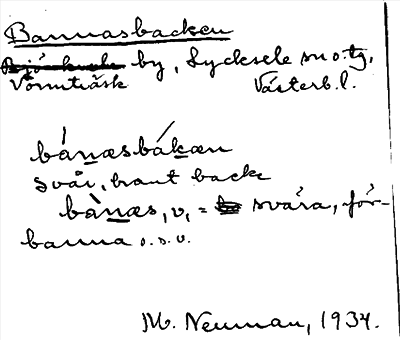 Bannasbacken
by, Lycksele sn o. tg,
Vormträsk Västerb. l.
bánæsbákæn
svår, brant backe
bànæs, v, = svära, för-
banna o.s.v.
M. Neuman, 1934.